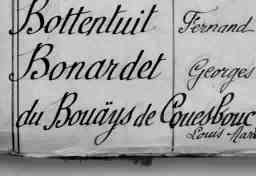 Bottentuit Fernand
Bonardet Georges
du Bouäys de Couesbouc
Louis Mari